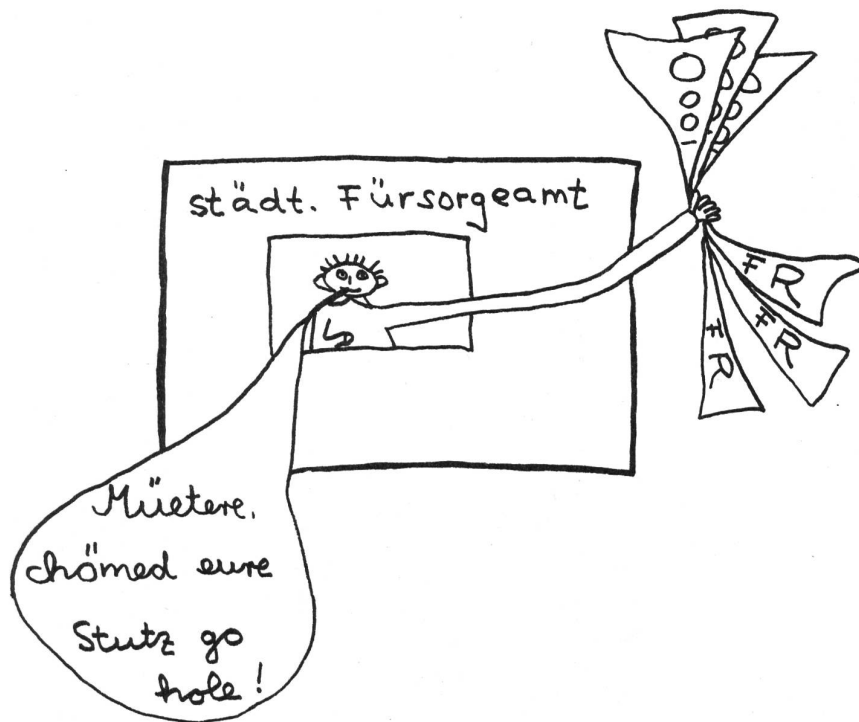 städt. Fürsorgeamt
1000
FR
FR
FR
Müetere,
chömed eure
Stutz go
hole!